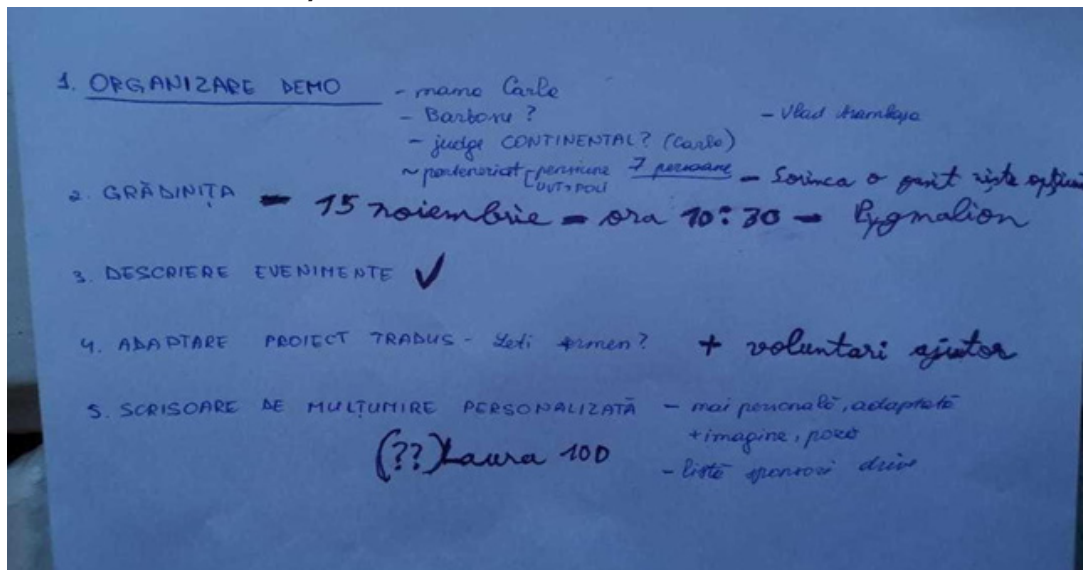 1. ORGANIZARE DEMO - mama Carla
- Barbone ?
- Vlad
- judge CONTINENTAL? (Carla)
~ parteneriat pensiune 7 persoane - Sorinca o găsit niște opțiuni
UVT>POLI
2. GRĂDINIȚA - 15 noiembrie - ora 10:30 - Pygmalion
3. DESCRIERE EVENIMENTE ✓
4. ADAPTARE PROIECT TRADUS - Leti ? + voluntari ajutor
5. SCRISOARE DE MULȚUMIRE PERSONALIZATĂ - mai personală, adaptată
+ imagine, poză
(??) Laura 100
- listă sponsori drive